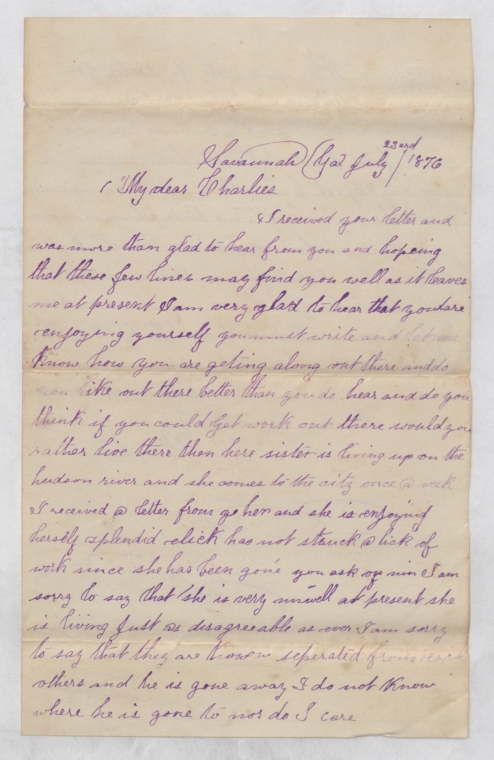 Savannah Ga July 23rd / 1876
My dear Charlies
I received your letter and
was more than glad to hear from you and hopeing
that these few lines may find you well as it leaves
me at present I am very glad to hear that you are
enjoying yourself you must write and let me
Know how you are geting along out there and do
you like out there better than you do hear and do you
think if you could Get work out there would you
rather live there then here sister is living up on the
hudson river and she comes to the city once a week
I received a letter from her and she is enjoying
herself splendid click has not struck a lick of
work since she has been gone you ask of I am
sorry to say that she is very unwell at present she
is living Just as disagreeable as ever I am sorry
to say that they are seperated from each
others and he is gone away I do not Know
where he is gone to nor do I care